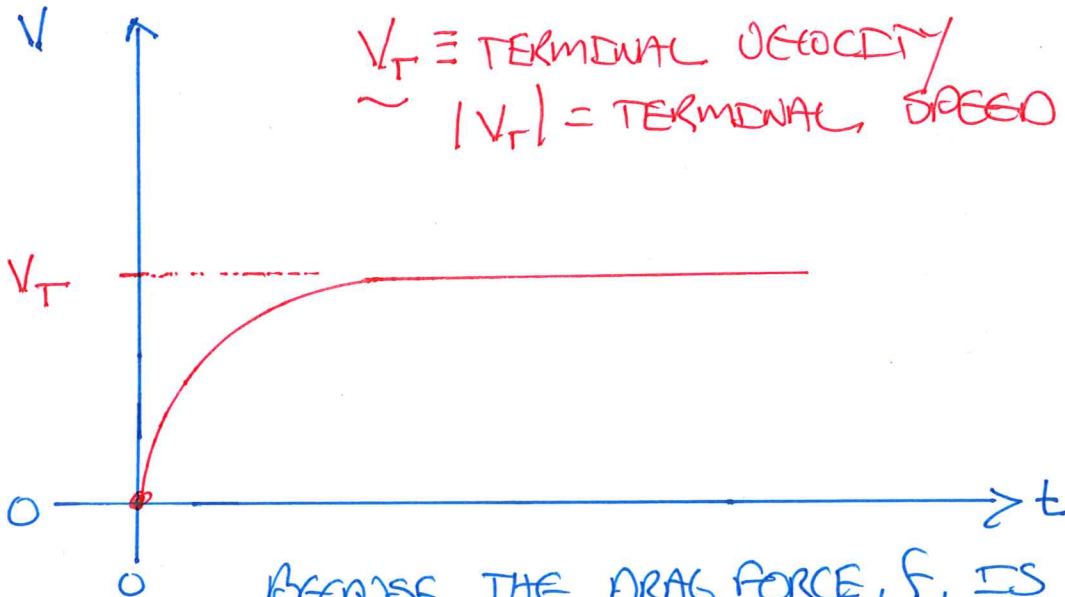 V
V_T ≡ TERMINAL VELOCITY
~ |V_T| = TERMINAL SPEED
V_T
0
t
0
BECAUSE THE DRAG FORCE, f, IS